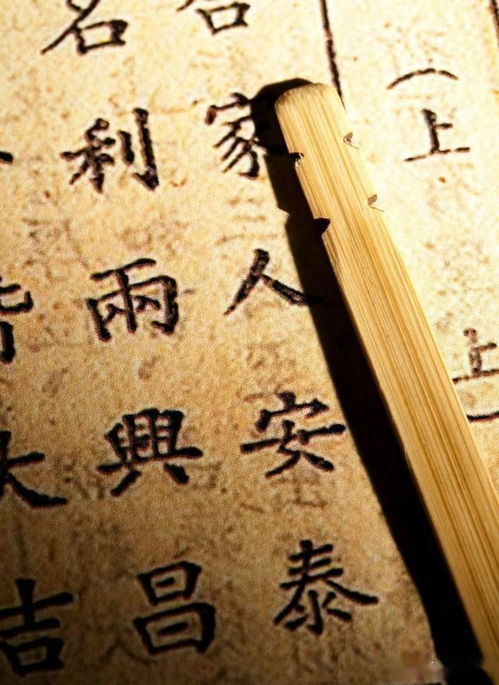 （上
上）
合家人安泰
名利兩興昌
皆大吉